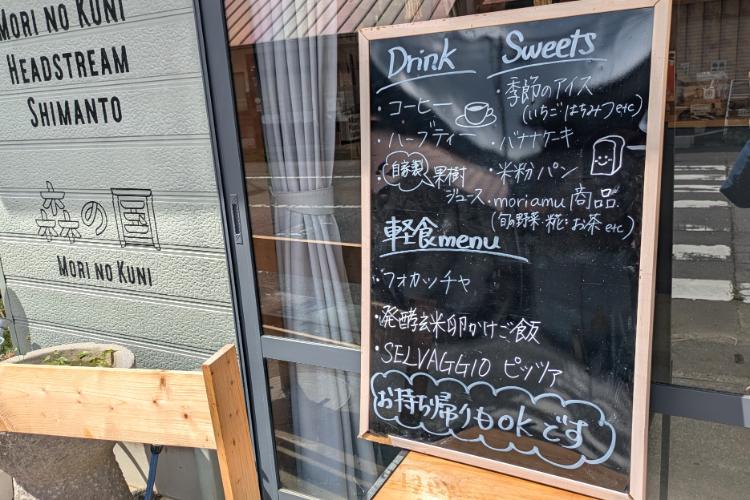 MORI NO KUNI
HEADSTREAM
SHIMANTO
森の国
MORI NO KUNI
Drink
・コーヒー
・ハーブティー
・自家製 果樹
ジュース
Sweets
・季節のアイス
(いちご はちみつ etc)
・バナナケーキ
・米粉パン
・moriamu 商品
(旬の野菜・糀・お茶 etc)
軽食menu
・フォカッチャ
・発酵玄米卵かけご飯
・SELVAGGIO ピッツァ
お持ち帰りもokです